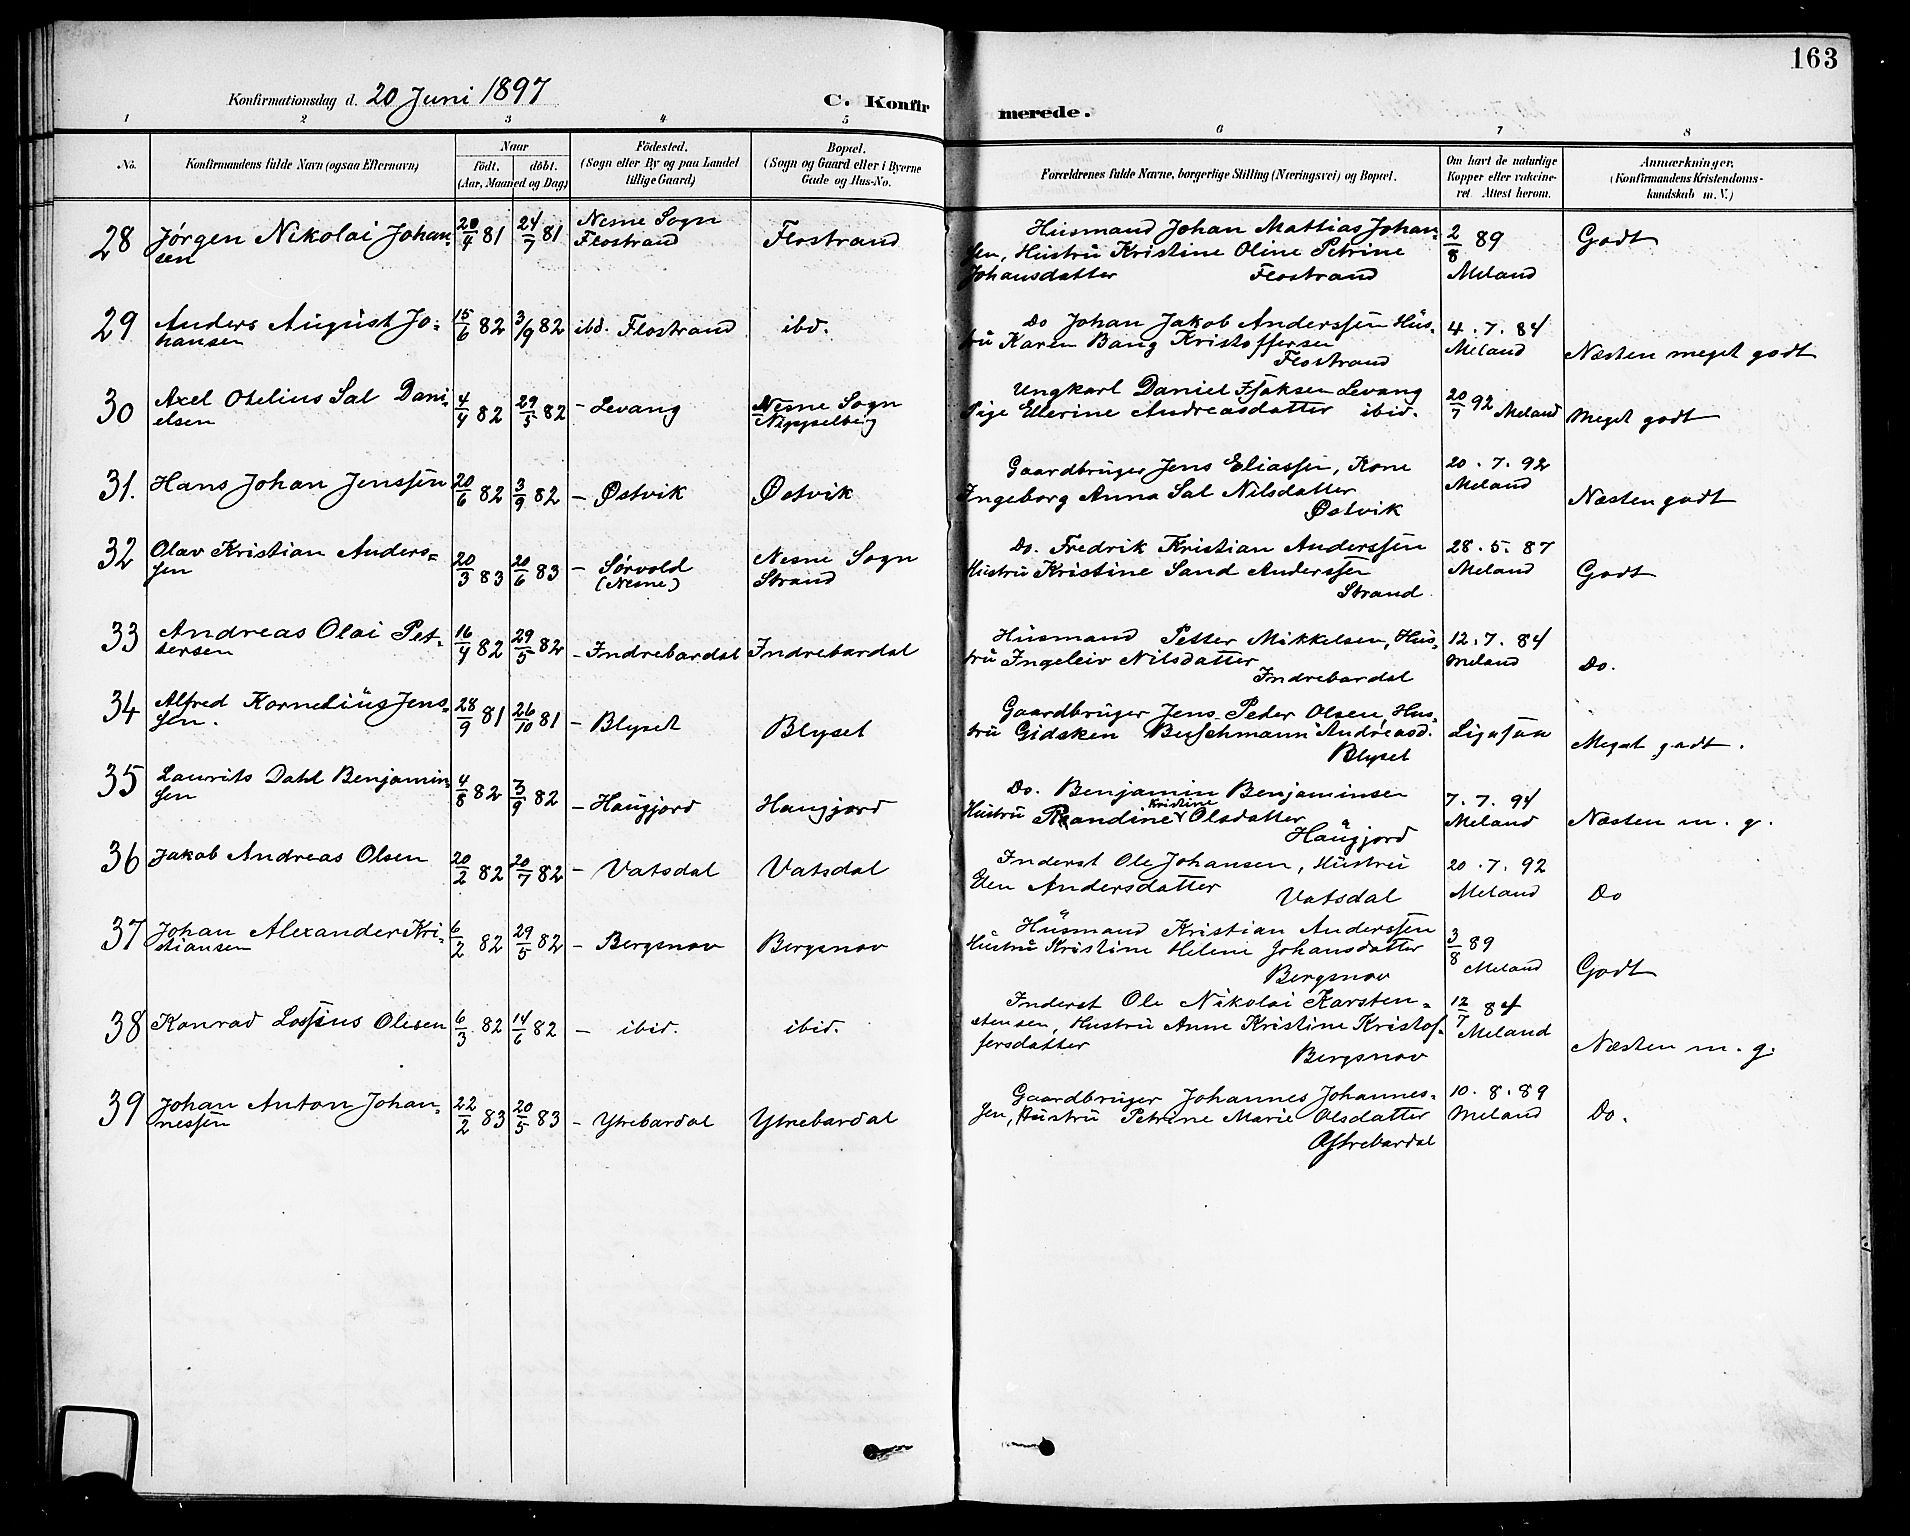 163
Konfirmationsdag d. 20 Juni 1897
C. Konfirmerede.
1 2 3 4 5 6 7 8
No.
Konfirmandens fulde Navn (ogsaa Efternavn)
Naar
födt. döbt.
(Aar, Maaned og Dag)
Födested.
(Sogn eller By og paa Landet
tillige Gaard)
Bopæl.
(Sogn og Gaard eller i Byerne
Gade og Hus-No.
Forældrenes fulde Navne, borgerlige Stilling (Næringsvei) og Bopæl.
Om havt de naturlige
Kopper eller vakcine-
ret. Attest herom.
Anmærkninger.
(Konfirmandens Kristendoms-
kundskab m. V.)
28 Jørgen Nikolai Johan-
sen
20/4 81 24/7 81
Nesne Sogn
Flostrand
Flostrand
Husmand Johan Mattias Johan-
sen, Hustru Kristine Oline Petrine
Johansdatter Flostrand
2/8 89
Meland
Godt
29 Anders August Jo-
hansen
15/6 82 3/9 82
ibd. Flostrand
ibd.
Do Johan Jakob Anderssen Hus-
tru Karen Bang Kristoffersen
Flostrand
4.7.84
Meland
Næsten meget godt
30 Axel Otelius Sal Dani-
elsen
4/4 82 29/5 82
- Levang
Nesne Sogn
Nippelberg
Ungkarl Daniel Isaksen Levang
Pige Ellerine Andreasdatter ibid.
20/7 92 Meland
Meget godt
31. Hans Johan Jenssen
20/6 82 3/9 82
- Østvik
Østvik
Gaardbruger Jens Eliassen, Kone
Ingeborg Anna Sal Nilsdatter
Østvik
20.7.92
Meland
Næsten godt
32 Olav Kristian Anders-
sen
20/3 83 20/6 83
- Sørvold
(Nesne)
Nesne Sogn
Strand
Do. Fredrik Kristian Anderssen
Hustru Kristine Sand Anderssen
Strand
28.5.87
Meland
Godt
33 Andreas Olai Pet-
tersen
16/4 82 29/5 82
- Indrebardal
Indrebardal
Husmand Petter Mikkelsen, Hus-
tru Ingeleiv Nilsdatter
Indrebardal
12.7.84
Meland
Do.
34 Alfred Kornelius Jens-
sen.
28/9 81 26/10 81
- Blyset
Blyset
Gaardbruger Jens Peder Olsen, Hus-
tru Gidsken Buschmann Andreasd.
Blyset
Ligesaa
Meget godt.
35 Laurits Dahl Benjamin-
sen
4/8 82 3/9 82
- Haugjord
Haugjord
Do. Benjamin Benjaminsen
Kristine
Hustru Randine Olsdatter
Haugjord
7.7.94
Meland
Næsten m. g.
36 Jakob Andreas Olsen
20/2 82 20/7 82
- Vatsdal
Vatsdal
Inderst Ole Johansen, Hustru
Elen Andersdatter
Vatsdal
20.7.92
Meland
Do
37 Johan Alexander Kri-
stiansen
6/2 82 29/5 82
- Bergsnov
Bergsnov
Husmand Kristian Anderssen
Hustru Kristine Helene Johansdatter
Bergsnov
3/8 89
Meland
Godt
38 Konrad Lossius Olesen
6/3 82 14/6 82
- ibid.
ibid.
Inderst Ole Nikolai Karsten-
stensen, Hustru Anne Kristine Kristof-
fersdatter
Bergsnov
12/7 84
Meland
Næsten m. g.
39 Johan Anton Johan-
nessen
22/2 83 20/5 83
- Ytrebardal
Ytrebardal
Gaardbruger Johannes Johannes-
sen, Hustru Petrine Marie Olsdatter
10.8.89
Meland
Do.